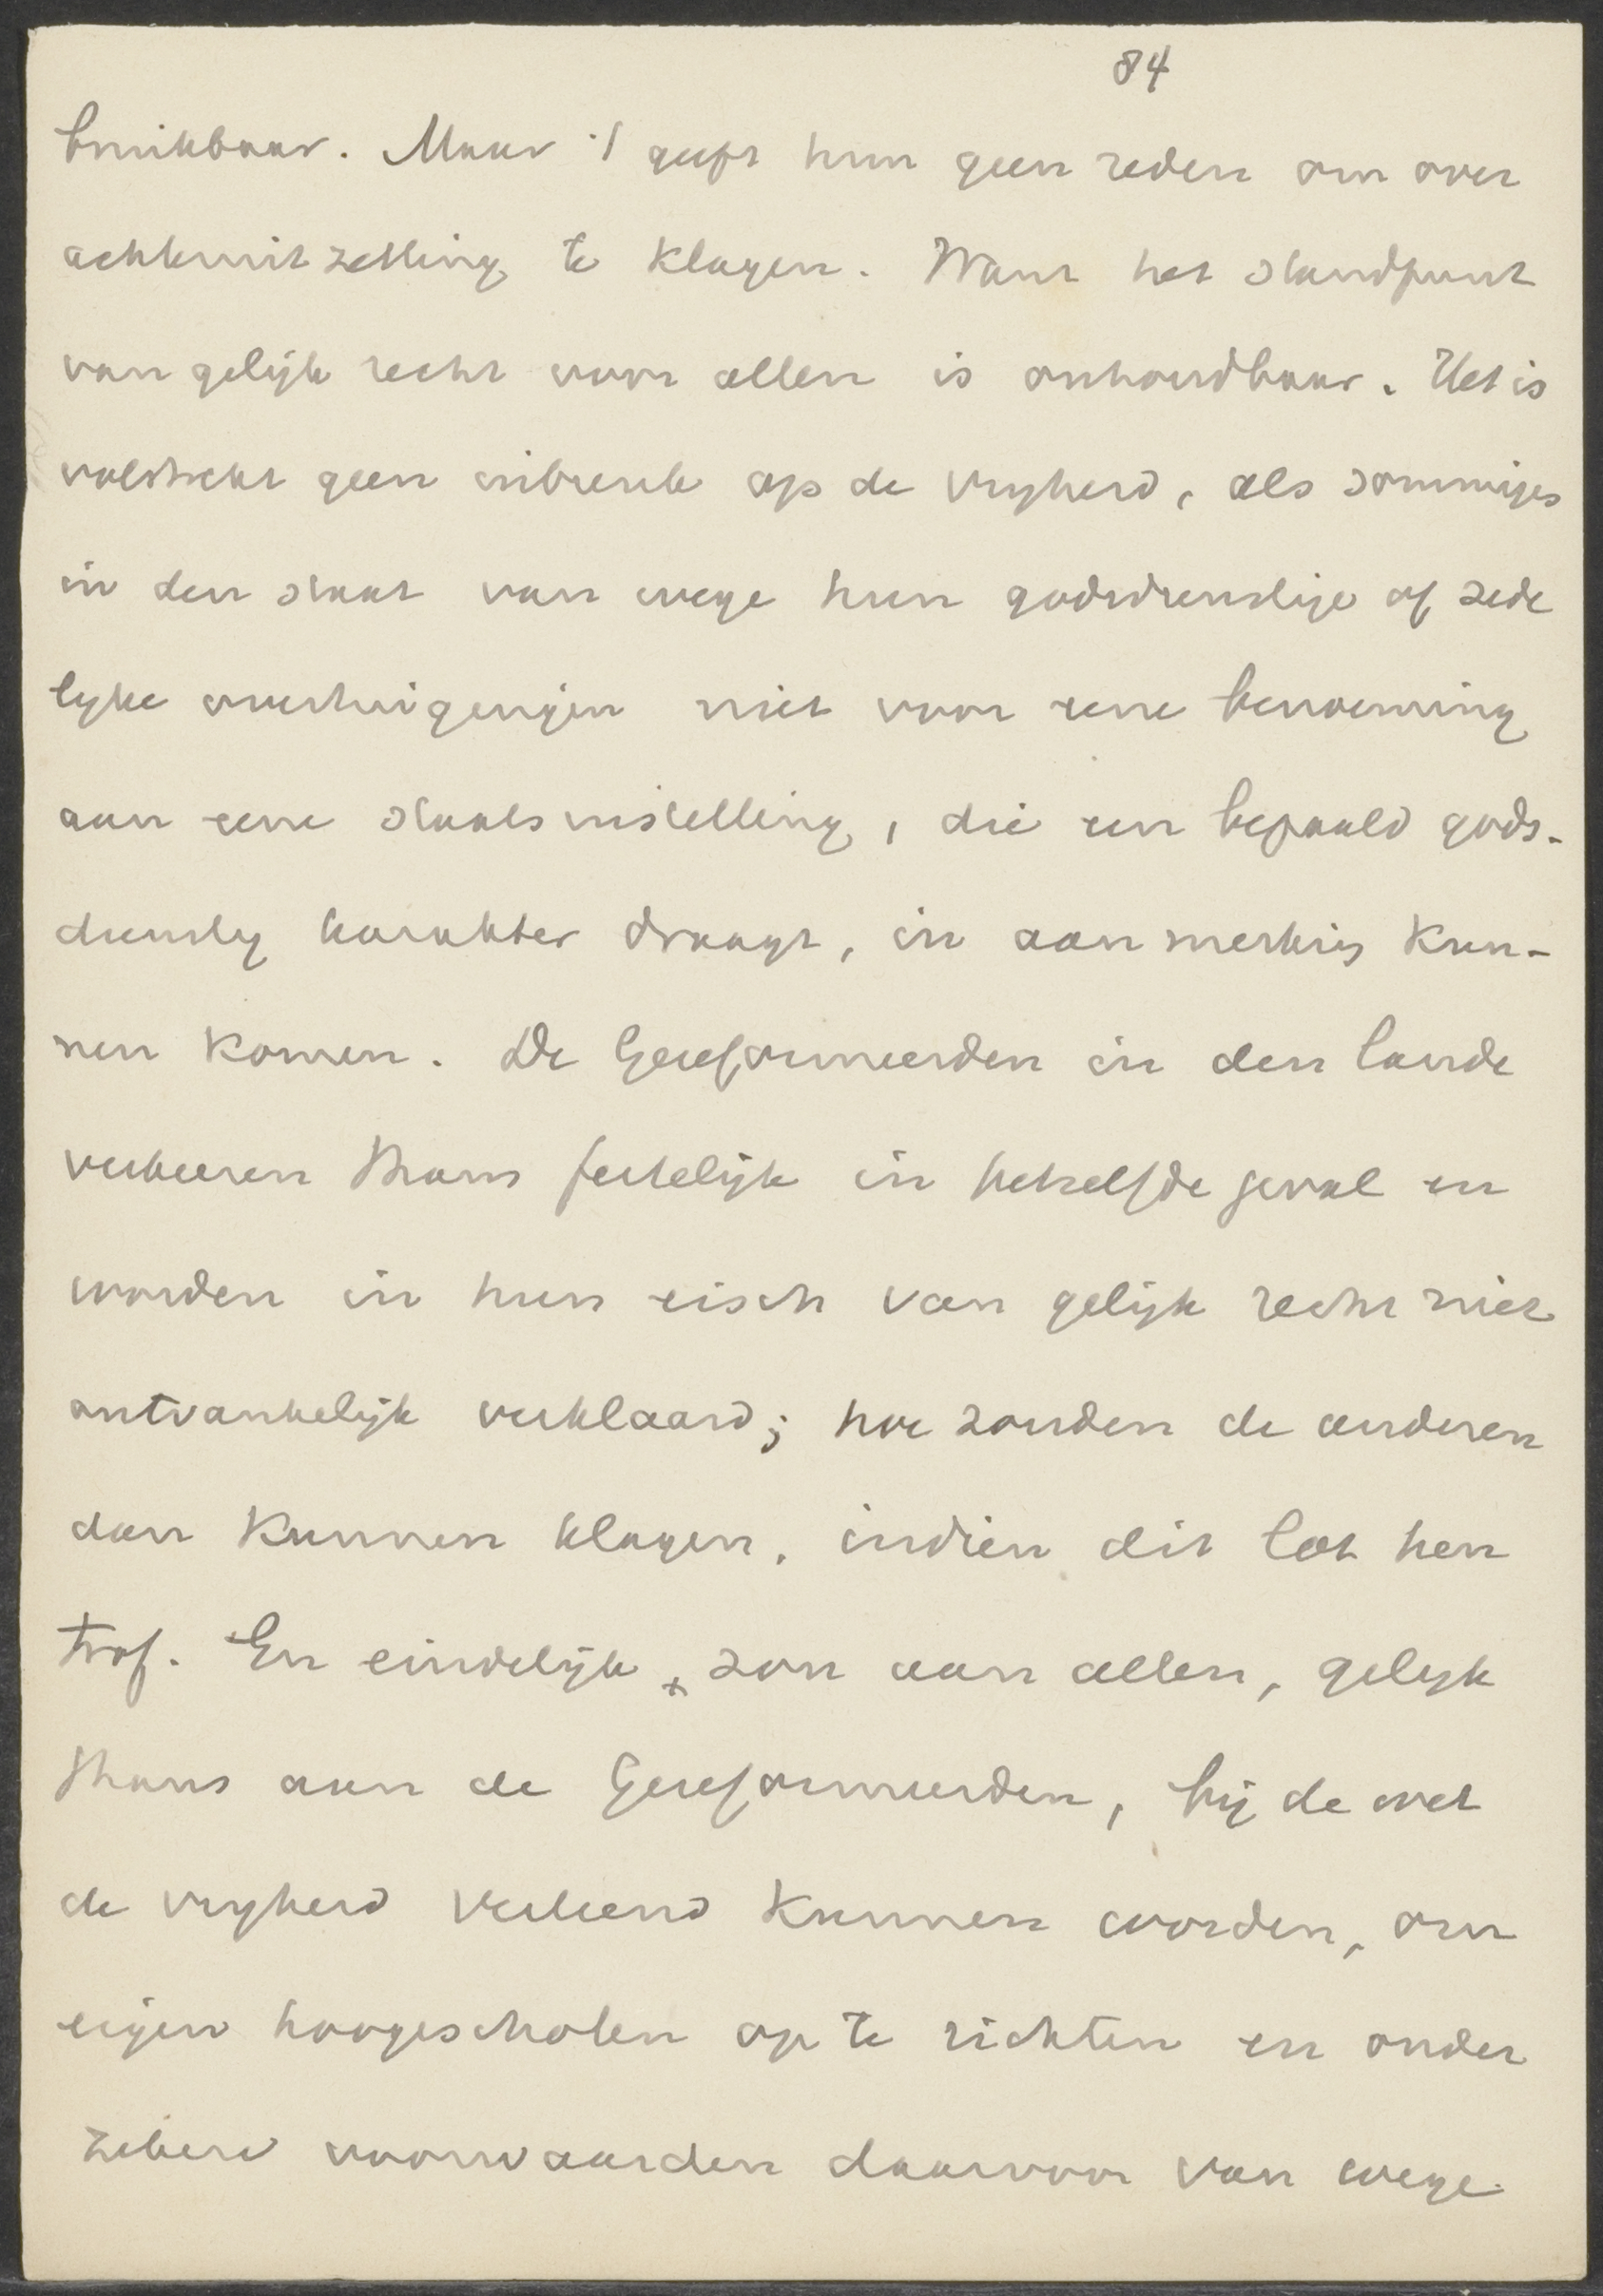 84
bruikbaar. Maar 't geeft hun geen reden om over
achteruitzetting te klagen. Want het standpunt
van gelijk recht voor allen is onhoudbaar. Het is
volstrekt geen inbreuk op de vryheid, als sommiges
in den staat van wege hun godsdienstige of zede
lyke overtuigingen niet voor eene benoeming
aan eene staatsinstelling, die een bepaald gods-
dienstig karakter draagt, in aanmerking kun-
nen komen. De Gereformeerden in den lande
verkeeren thans feitelijk in hetzelfde geval en
worden in hun eisch van gelijk recht niet
ontvankelijk verklaard; hoe zouden de anderen
dan kunnen klagen, indien dit lot hen
trof. En eindelijk, zou aan allen, gelyk
thans aan de Gereformeerden, bij de wet
de vryheid verleend kunnen worden, om
eigen hoogescholen op te richten en onder
zekere voorwaarden daarvoor van wege